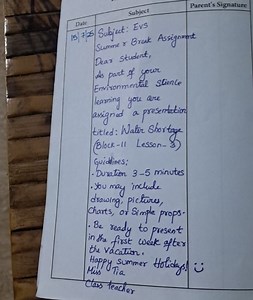 Date
Subject
Parent's Signature
18/7/25 Subject: EVS
Summer Break Assignment
Dear Student,
As part of your
Environmental Science
learning you are
assigned a presentation
titled: Water Shortage
(Block-11 Lesson-3)
Guidlines:
- Duration 3-5 minutes
- You may include
drawing, pictures,
Charts, or Simple props.
- Be ready to present
in the first week after
the vacation.
Happy summer Holidays!
Miss Tia
Class teacher